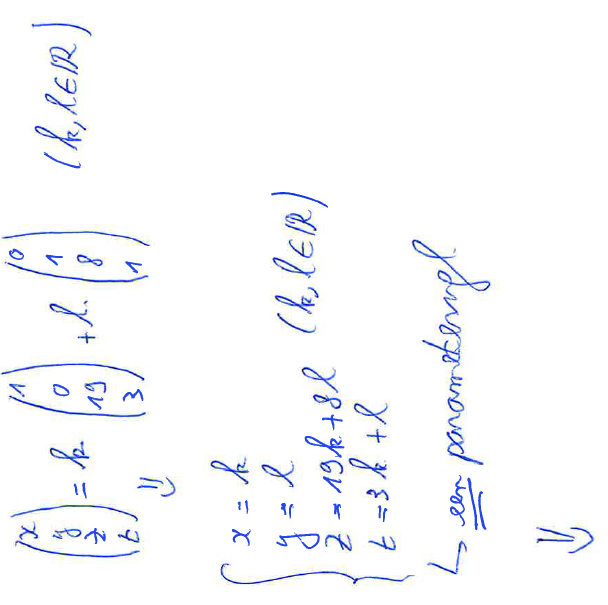 (x y z t) = k (1 0 19 3) + l. (0 1 8 1) (k, l ∈ ℝ)
⇓
{ x = k
y = l
z = 19k + 8l (k, l ∈ ℝ)
t = 3k + l
↳ een parameterngl.
⇓